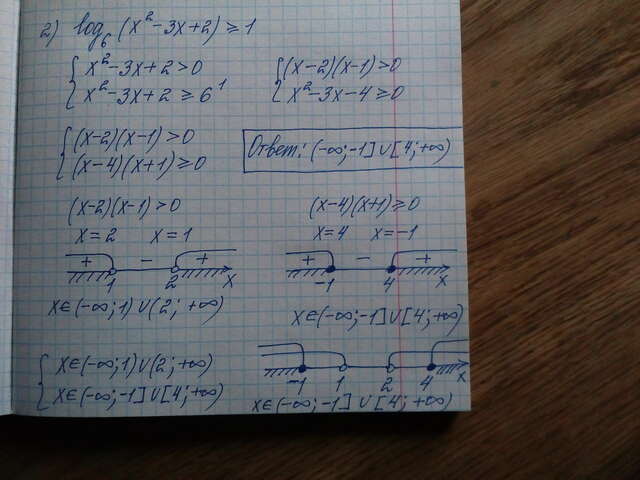 2) log₆(x²-3x+2) ≥ 1
{ x²-3x+2>0
{ x²-3x+2 ≥ 6¹
{ (x-2)(x-1)>0
{ x²-3x-4≥0
{ (x-2)(x-1)>0
{ (x-4)(x+1)≥0
Ответ: (-∞; -1] ∪ [4; +∞)
(x-2)(x-1)>0
x=2 x=1
+ - +
1 2 x
x∈(-∞; 1) ∪ (2; +∞)
(x-4)(x+1)≥0
x=4 x=-1
+ - +
-1 4 x
x∈(-∞; -1] ∪ [4; +∞)
{ x∈(-∞; 1) ∪ (2; +∞)
{ x∈(-∞; -1] ∪ [4; +∞)
-1 1 2 4 x
x∈(-∞; -1] ∪ [4; +∞)